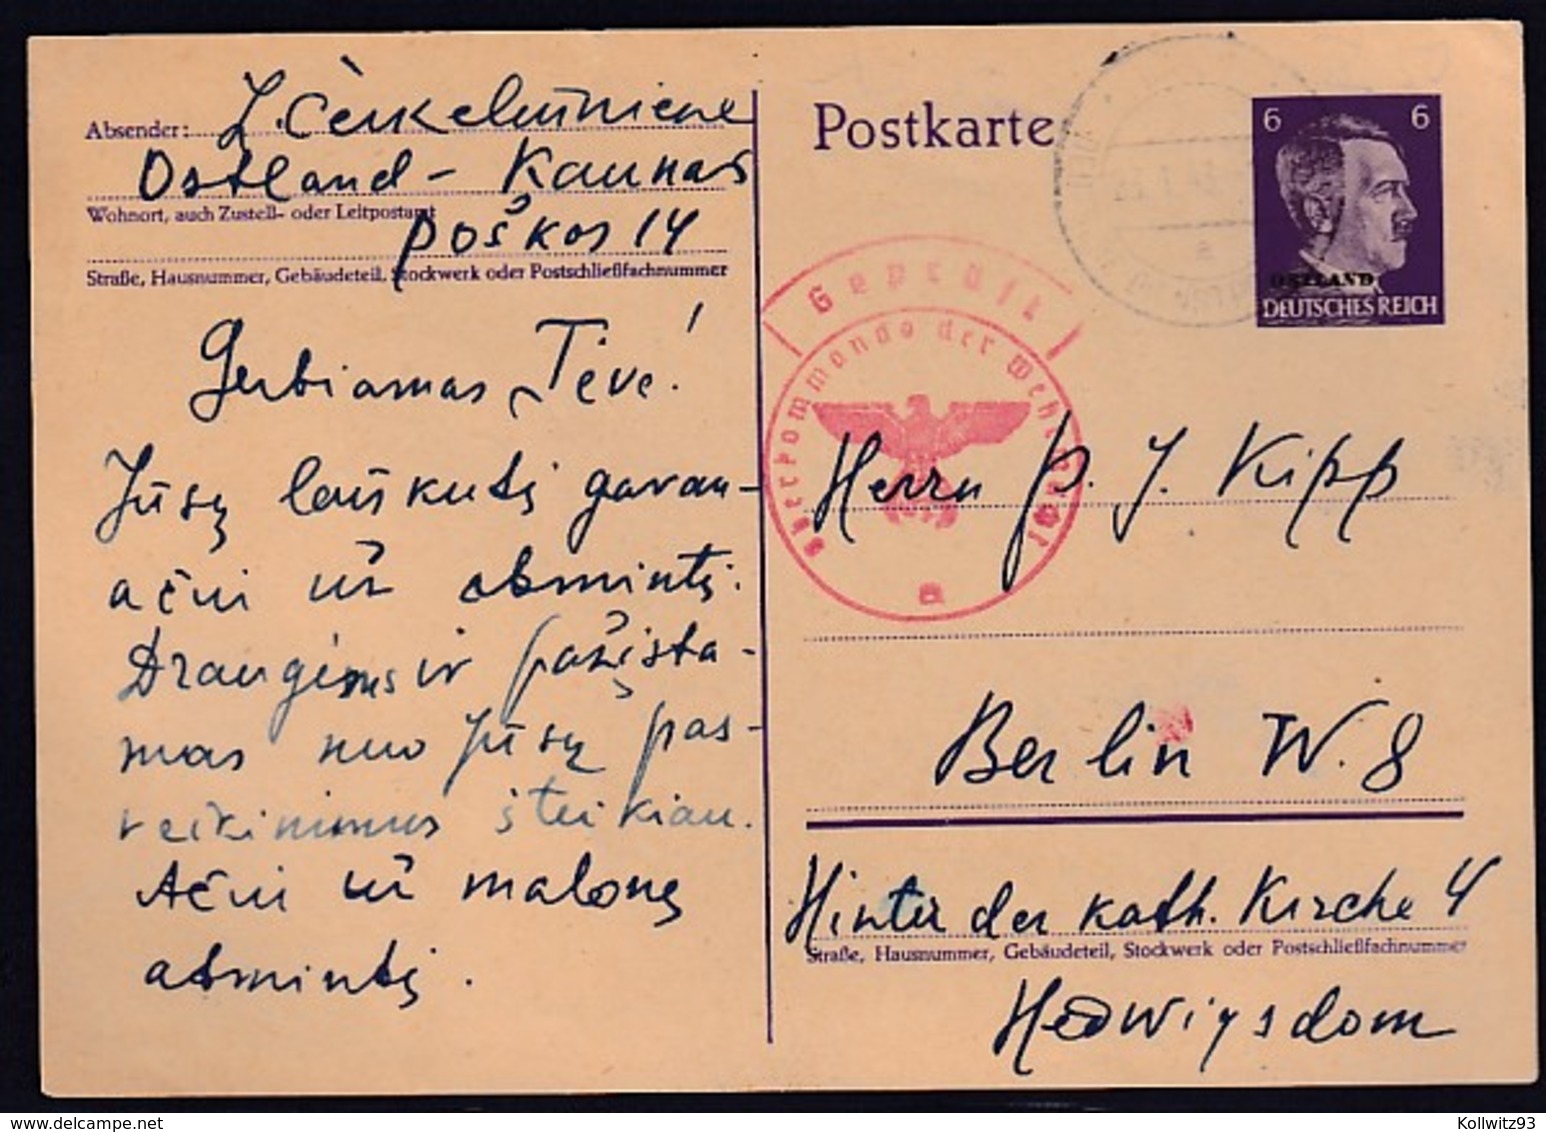 Absender: L. Čerkeliūnienė
Ostland - Kaunas
Wohnort, auch Zustell- oder Leitpostamt
Poškos 14
Straße, Hausnummer, Gebäudeteil, Stockwerk oder Postschließfachnummer
Gerbiamas Tėve!
Jūsų laiškutį gavau -
ačiū už atmintį.
Draugėms ir pažįsta-
mas nuo Jūsų pas-
veikinimus šteikiau.
Ačiū už malonų
atmintį.
Postkarte
6 6
OSTLAND
DEUTSCHES REICH
Geprüft
Oberkommando der Wehrmacht
a
a
Herrn P. J. Kipp
Berlin W. 8
Hinter der kath. Kirche 4
Straße, Hausnummer, Gebäudeteil, Stockwerk oder Postschließfachnummer
Hedwigsdom
Kollwitz93